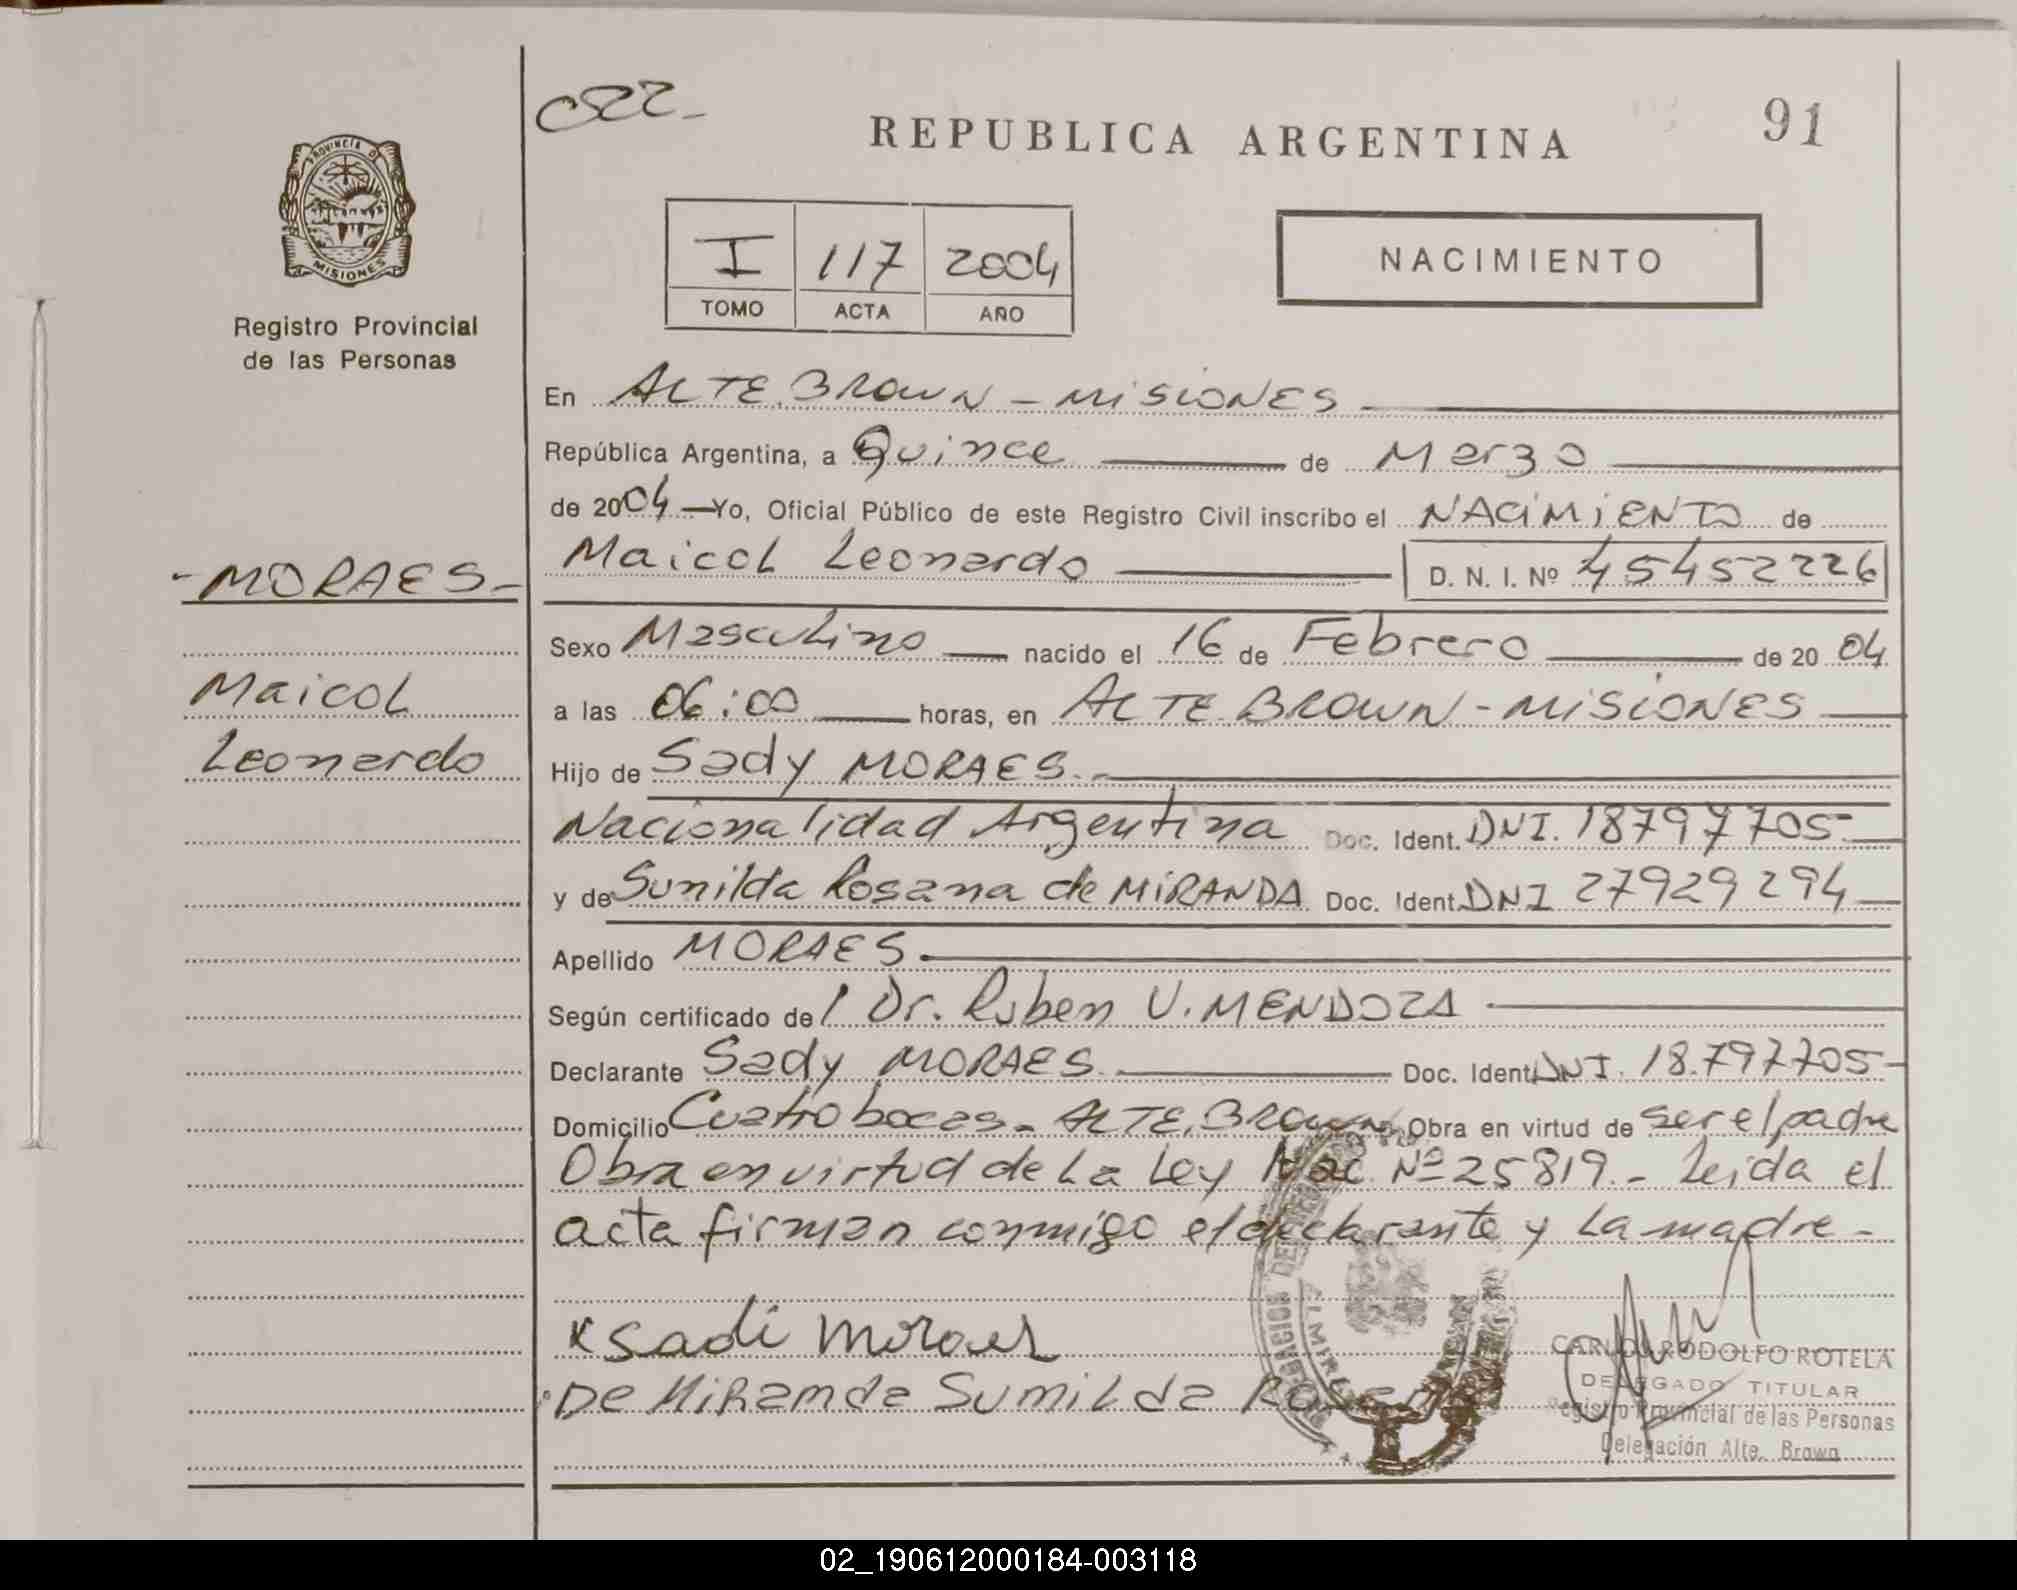 C22-
REPUBLICA ARGENTINA
91
PROVINCIA D
MISIONES
Registro Provincial
de las Personas
I 117 2004
TOMO ACTA AÑO
NACIMIENTO
En ALTE. BROWN - MISIONES
República Argentina, a Quince de Marzo
de 2004 Yo, Oficial Público de este Registro Civil inscribo el NACIMIENTO de
Maicol Leonardo D. N. I. Nº 45452226
-MORAES-
Maicol
Leonardo
Sexo Masculino nacido el 16 de Febrero de 2004
a las 06:00 horas, en ALTE. BROWN - MISIONES
Hijo de Sady MORAES.-
Nacionalidad Argentina Doc. Ident. DNI. 18797705-
y de Sunilda Rosana de MIRANDA Doc. Ident. DNI 27929294
Apellido MORAES.
Según certificado de / Dr. Ruben V. MENDOZA
Declarante Sady MORAES Doc. Ident. DNI. 18.797705-
Domicilio Cuatro bocas - ALTE. BROWN Obra en virtud de ser el padre
Obra en virtud de La Ley Nac. Nº 25819.- Leida el
acta firman conmigo el declarante y La madre.-
x sadi moraes
De Miranda Sumilda Rosana
CARLOS RODOLFO ROTELA
DELEGADO TITULAR
Registro Provincial de las Personas
Delegación Alte. Brown
02_190612000184-003118